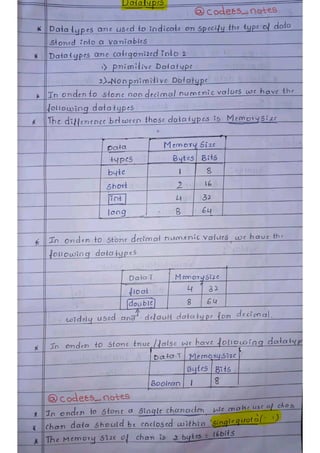 Datatypes
@codees_notes
* Datatypes are used to indicate on specify the type of data
stored into a variables
* Datatypes are categorized into 2
1) primitive Datatype
2) Nonprimitive Datatype
* In order to store non decimal numeric values we have the
following datatypes
* The difference between those datatypes is MemorySize
Data types Memory Size
Bytes Bits
byte 1 8
Short 2 16
int 4 32
long 8 64
* In order to store decimal numeric values we have the
following datatypes
Data T Memorysize
float 4 32
double 8 64
widely used and default datatype for decimal.
* In order to store true /false we have following datatype
Data T MemorySize
Bytes Bits
Boolean 1 8
@codees_notes
* In order to store a Single character we make use of char
* char data should be enclosed within 'singlequote(' ')
* The Memory Size of char is 2 bytes = 16bits